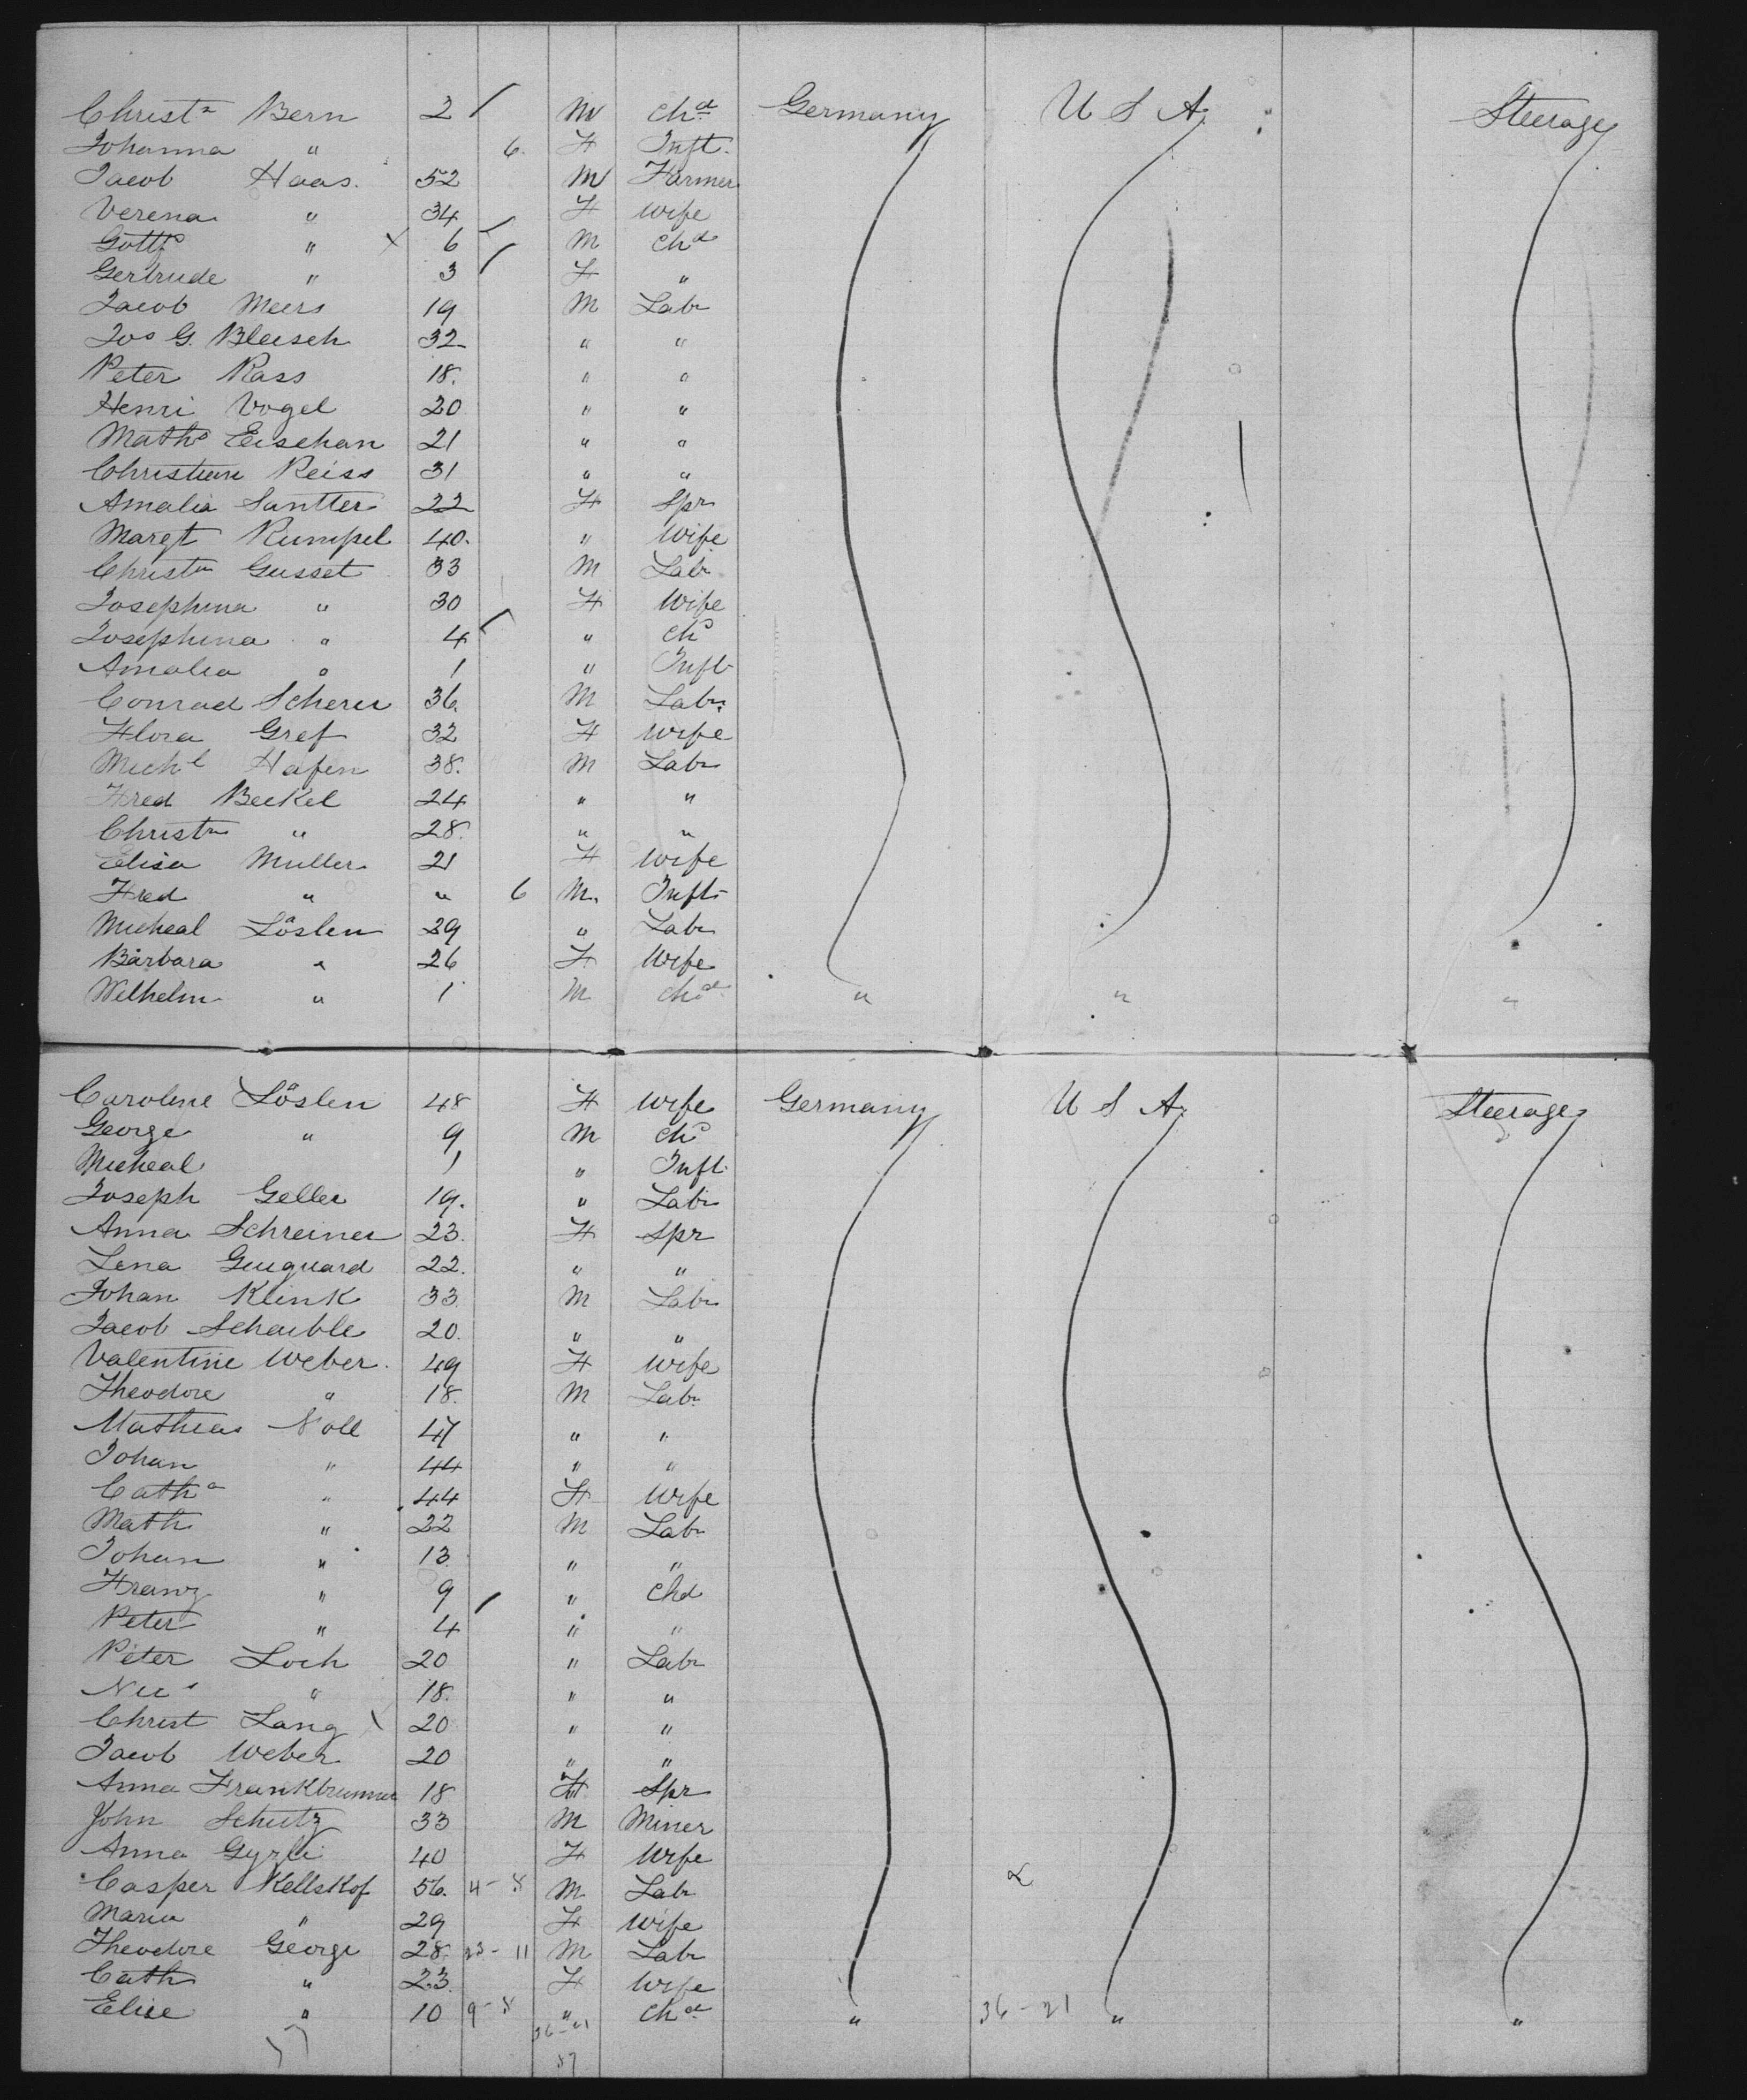 Christn Bern 2 M Chd Germany U S A. Steerage
Johanna " 6. F Inft.
Jacob Haas. 52 M Farmer
Verena " 34 F Wife
Gottfd " X 6 M Chd
Gertrude " 3 F "
Jacob Meers 19 M Labr
Jos G. Bleisch 32 " "
Peter Rass 18. " "
Henri Vogel 20 " "
Maths Eischan 21 " "
Christian Reiss 31 " "
Amalia Santter 22 F Spr
Margt Rumpel 40. " Wife
Christn Gusset 33 M Labr
Josephina " 30 F Wife
Josephina " 4 " Chd
Amalia " 1 " Inft
Conrad Scherer 36. M Labr.
Flora Gref 32 F Wife
Michl Hafen 38. M Labr
Fred Beckel 24 " "
Christn " 28. " "
Elisa Muller 21 F Wife
Fred " " 6 M. Inft
Micheal Löslen 29 " Labr
Barbara " 26 F Wife
Wilhelm " 1 M Chd " " "
Caroline Löslen 48 F Wife Germany U S A. Steerage
George " 9 M Chd
Micheal 1 " Inft
Joseph Geller 19. " Labr
Anna Schreiner 23. F Spr
Lena Guiguard 22. " "
Johan Klink 33 M Labr
Jacob Schaible 20. " "
Valentine Weber 49 F Wife
Theodore " 18. M Labr
Mathias Noll 47 " "
Johan " 44 " "
Catha " 44 F Wife
Math " 22 M Labr
Johan " 13 " "
Franz " 9 " Chd
Peter " 4 " "
Peter Loch 20 " Labr
Nics " 18. " "
Christ Lang 20 " "
Jacob Weber 20 " "
Anna Frankbrunner 18 F Spr
John Schutz 33 M Miner
Anna Gyzli 40 F Wife
Casper Kellskof 56. 4 - 8 M Labr
Maria " 29 F Wife
Theodore George 28. 23 - 11 M Labr
Cath " 23. F Wife
Elise " 10 9 - 8 " Chd " 36 - 21 " "
36 - 21
57 57